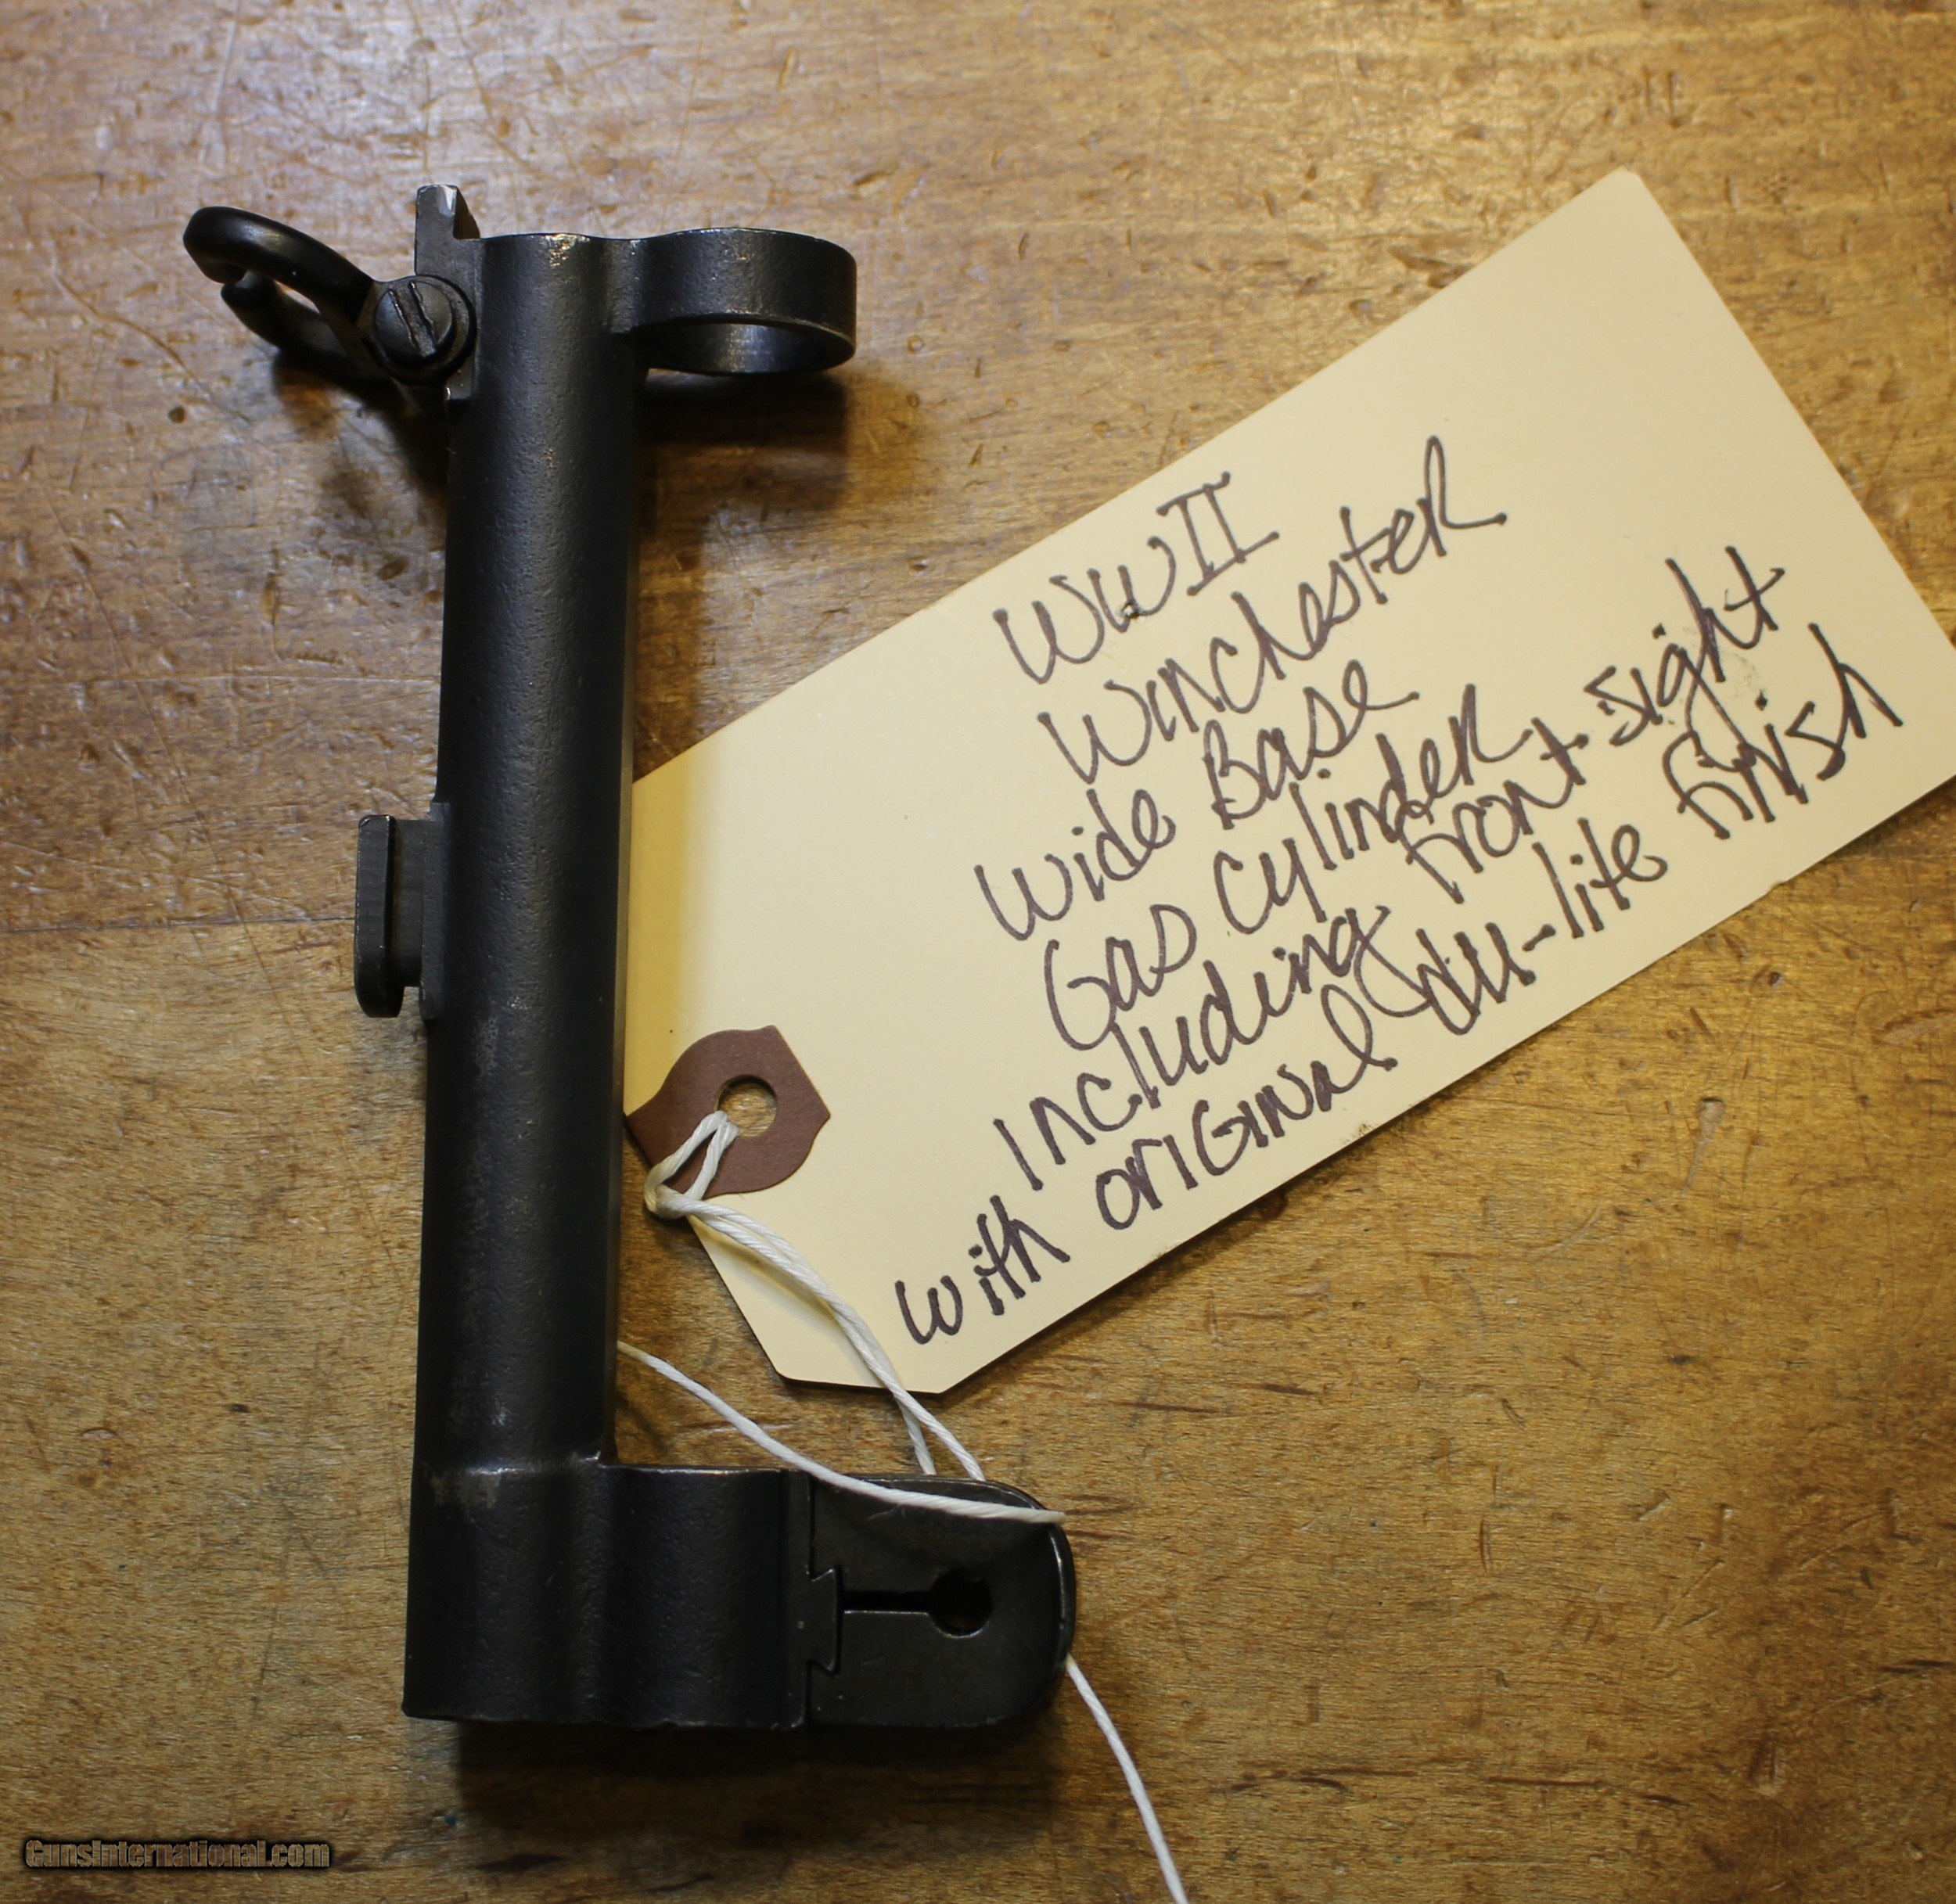 WWII
Winchester
Wide Base
Gas Cylinder
including front sight
with original du-lite finish
GunsInternational.com